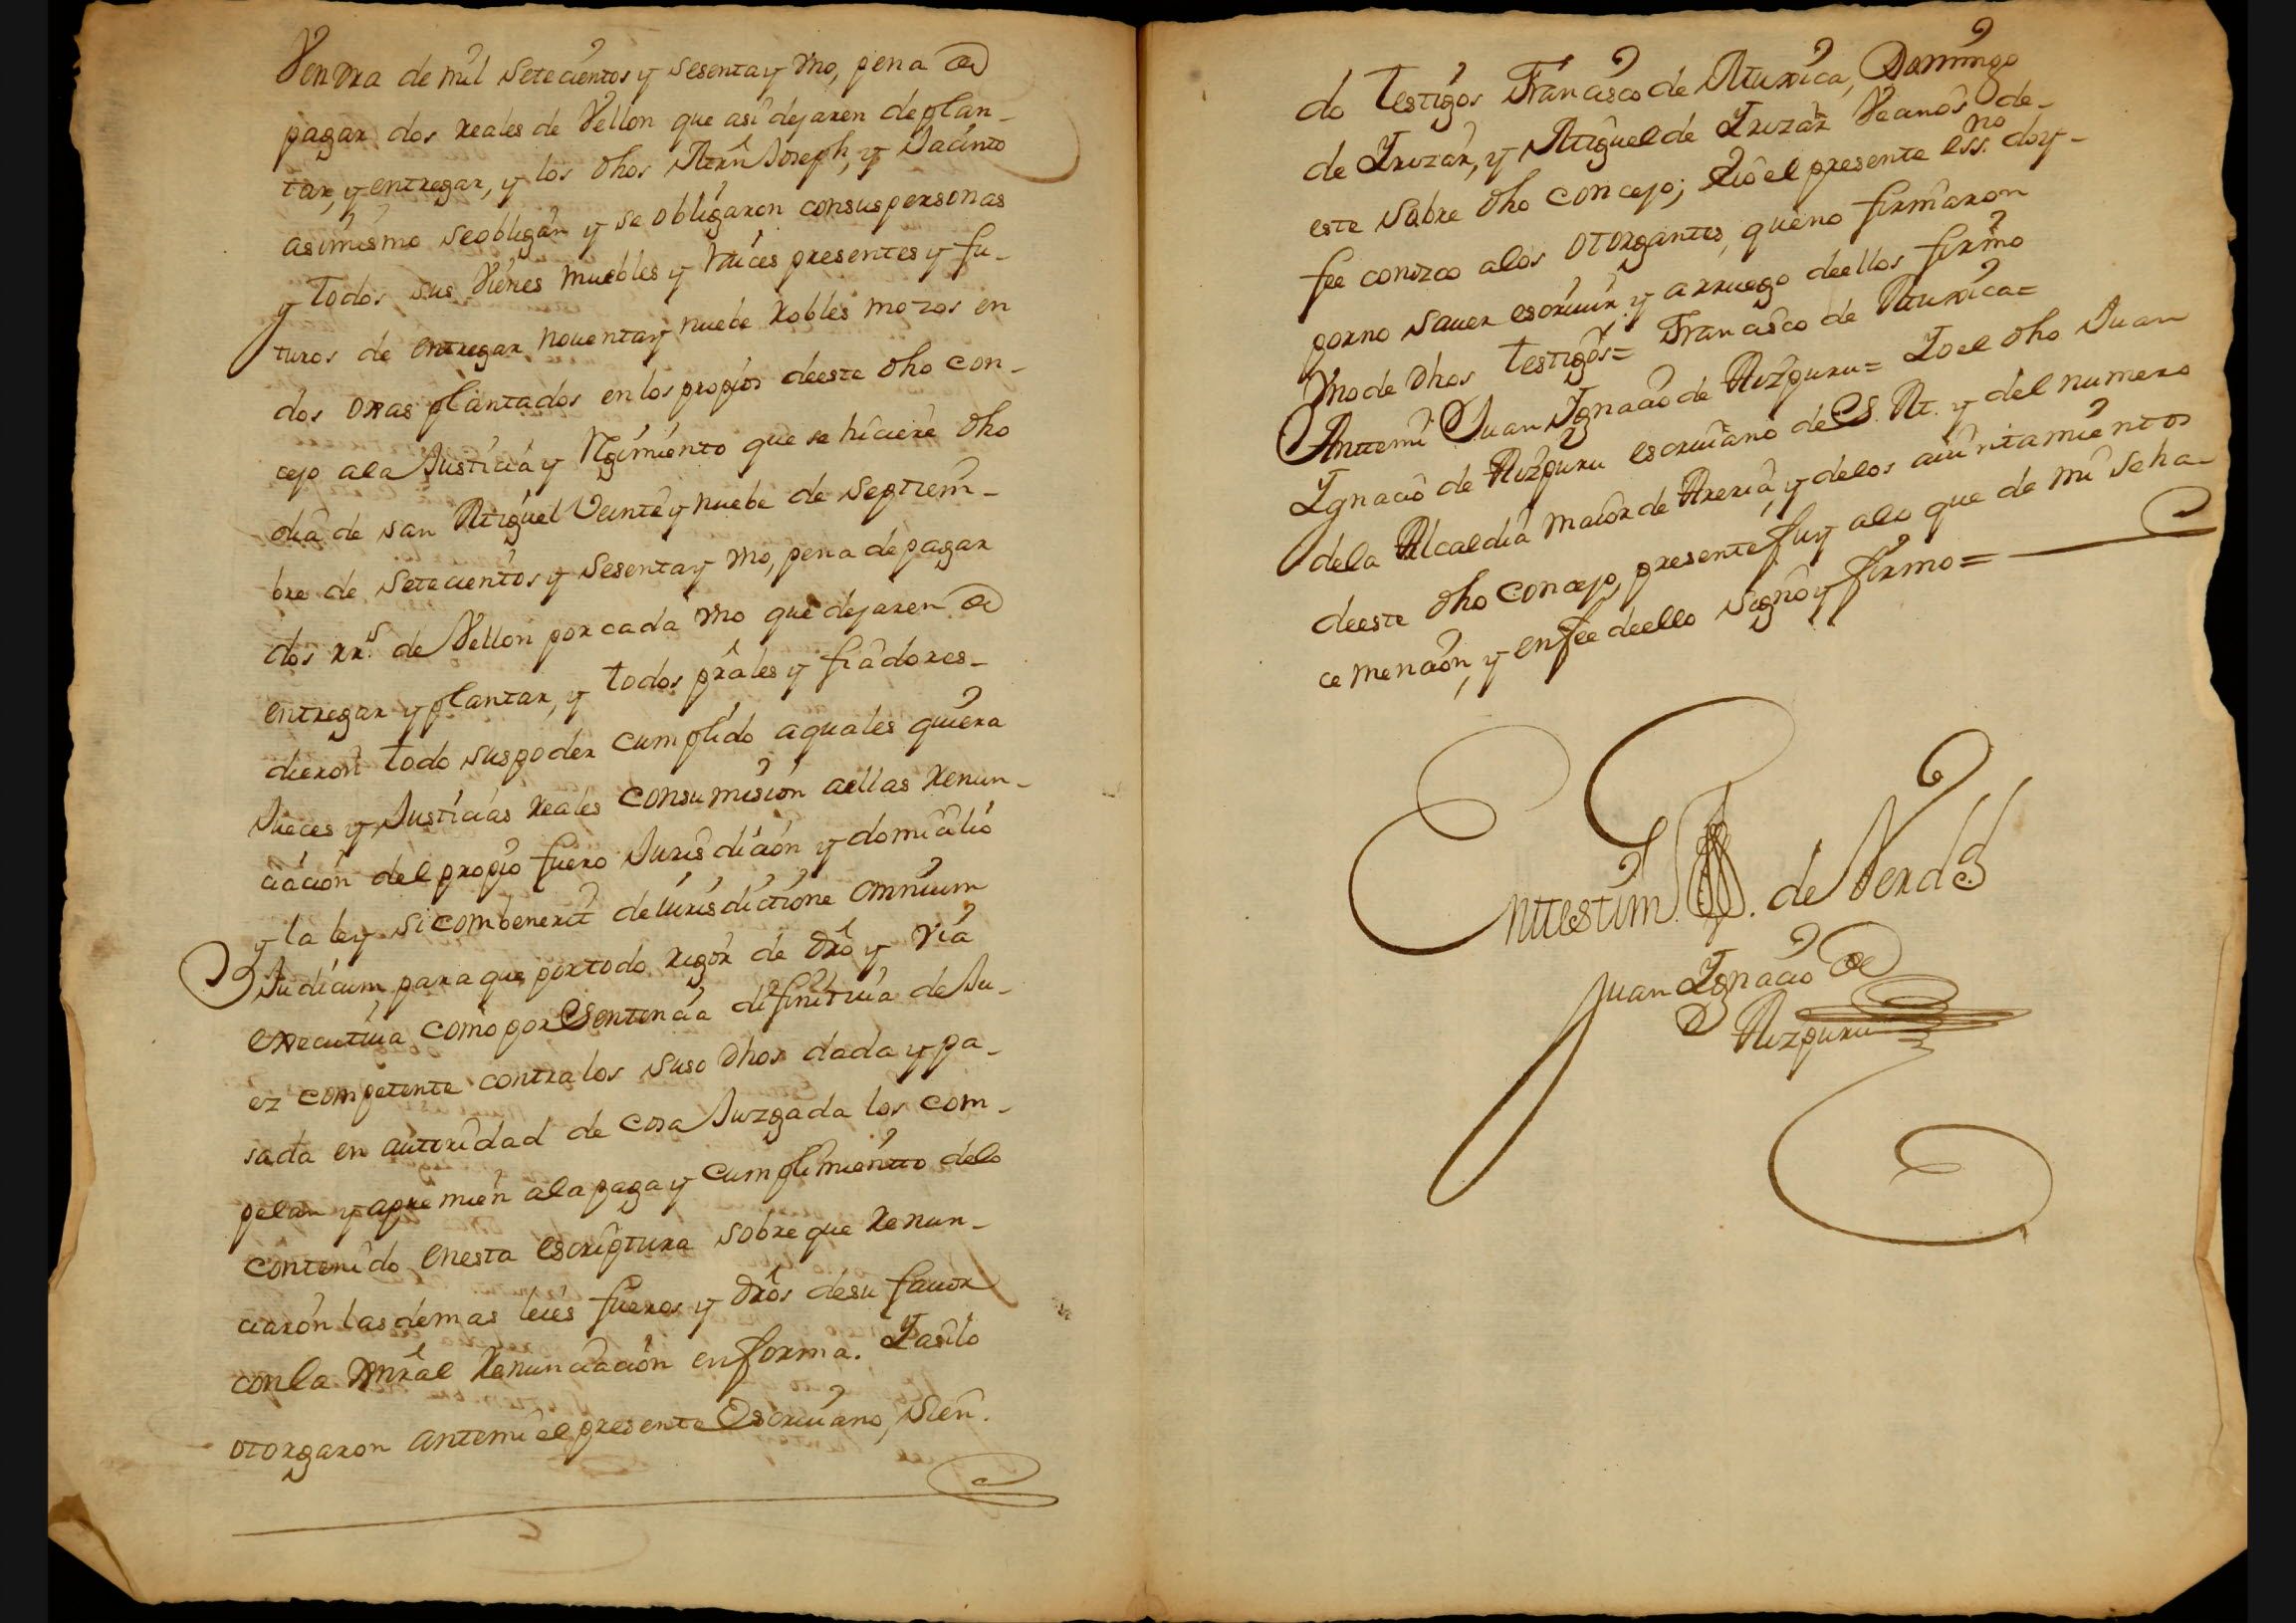 Vendra de mil setecientos y sesenta y uno, pena de
pagar dos reales de Vellon que asi dejaren de plan-
tar, y entregar, y los dhos Martin Joseph, y Jacinto
asimismo se obligan y se obligaron con sus personas
y todos sus vienes muebles y raices presentes y fu-
turos de entregar nouenta y nuebe robles mozos en
dos oxas plantados en los propios de este dho con-
cejo a la Justicia y Regimiento que se hiciere dho
dia de san Miguel Veinte y nuebe de Septiem-
bre de setecientos y sesenta y uno, pena de pagar
dos rr.s de Vellon por cada uno que dejaren de
entregar y plantar, y todos prāles y fiadores-
dieron todo su poder cumplido a quales quiera
Jueces y Justicias reales con sumision a ellas renun-
ciacion del propio fuero Jurisdicion y domicilio
y la ley si combenerit de iurisdictione omnium
Judicum, para que por todo rigor de dro y via
executiua como por sentencia difinitiua de Ju-
ez competente contra los suso dhos dada y pa-
sada en autoridad de cosa Juzgada los com-
pelan y apremien a la paga y cumplimientto de lo
contenido en esta escriptura sobre que renun-
ciaron las demas leies fueros y dros de su fauor
con la gnral renunciacion en forma. Y asi lo
otorgaron ante mi el presente Escriuano, sien-
do testigos Francisco de Murica, Domingo
de Irizar, y Miguel de Irizar Vecinos de-
este sobre dho concejo; e io el presente ess.no doy-
fee conozco a los otorgantes, que no firmaron
por no sauer escriuir y a rruego de ellos firmo
uno de dhos testigos= Francisco de Murica=
Anttemi Juan Ignacio de Aizpuru= Yo el dho Juan
Ignacio de Aizpuru escriuano de S. M. y del numero
de la Alcaldia maior de Areria, y de los aiuntamientos
de este dho concejo, presente fuy a lo que de mi se ha-
ce mencion, y en fee de ello signo y firmo=
En ttestim.o de Verdd
Juan Ignacio de
Aizpuru